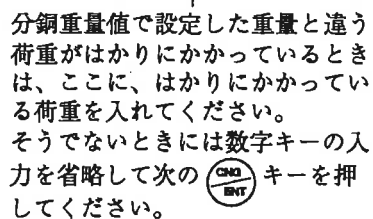 分銅重量値で設定した重量と違う
荷重がはかりにかかっているとき
は、ここに、はかりにかかってい
る荷重を入れてください。
そうでないときには数字キーの入
力を省略して次の CNG ENT キーを押
してください。